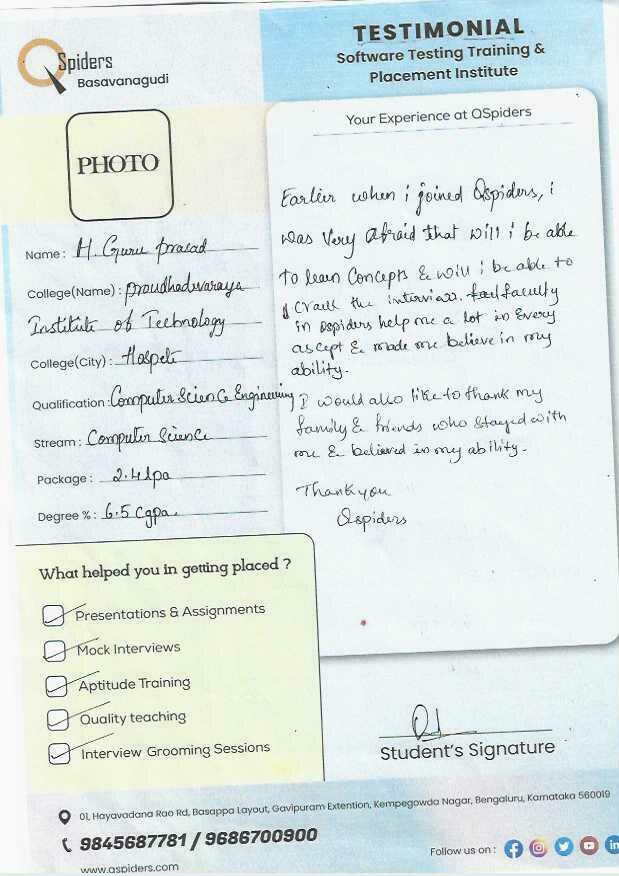 QSpiders
Basavanagudi
TESTIMONIAL
Software Testing Training &
Placement Institute
PHOTO
Name : H. Guru prasad
College(Name) : proudhadevaraya
Institute of Technology
College(City) : Hospete
Qualification : Computer Science Engineering
Stream : Computer Science
Package : 2.4 lpa
Degree % : 6.5 Cgpa.
Your Experience at QSpiders
Earlier when i joined Qspiders, i
was very afraid that will i be able
to learn concepts & will i be able to
crack the interview. faculty
in Qspiders help me a lot in every
ascept & made me believe in my
ability.
I would also like to thank my
family & friends who stayed with
me & believed in my ability.
Thank you
Qspiders
What helped you in getting placed ?
Presentations & Assignments
Mock Interviews
Aptitude Training
Quality teaching
Interview Grooming Sessions
Student's Signature
01, Hayavadana Rao Rd, Basappa Layout, Gavipuram Extention, Kempegowda Nagar, Bengaluru, Karnataka 560019
9845687781 / 9686700900
www.qspiders.com
Follow us on :